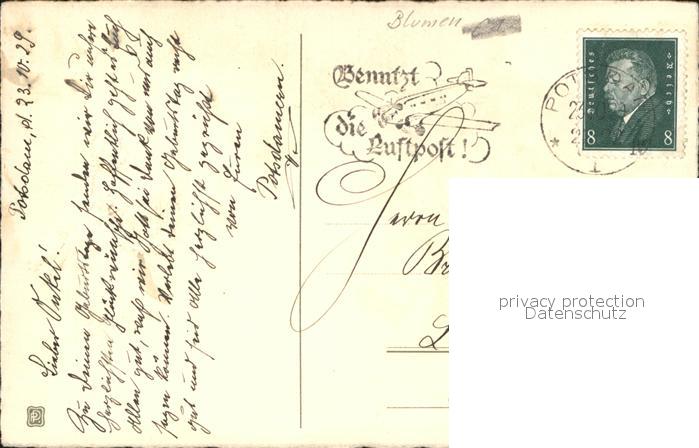 Blumen
Potsdam, d. 23.10.29.
Lieber Onkel!
Zu Deinem Geburtstage senden wir Dir unsere
herzlichsten Glückwünsche. Hoffentlich geht es Euch
Allen gut, was wir Gott sei dank von uns auch
sagen können. Verlebt Deinen Geburtstag recht
gut und seid Alle herzlichst gegrüßt
von Euren
Potsdamern.
Benutzt
die
Luftpost!
POTSDAM
1
Deutsches Reich
8 8
Herrn
privacy protection
Datenschutz